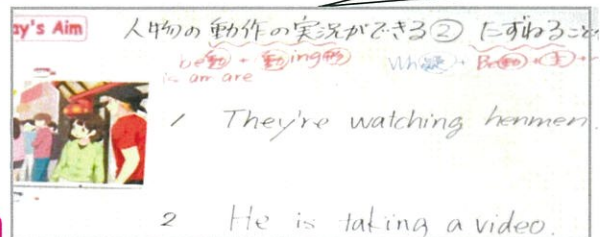 ay's Aim 人物の動作の実況ができる② たずねること
be動 + 動ing形 Wh疑 + Be動 + 主 +
is am are
1 They're watching henmen.
2 He is taking a video.